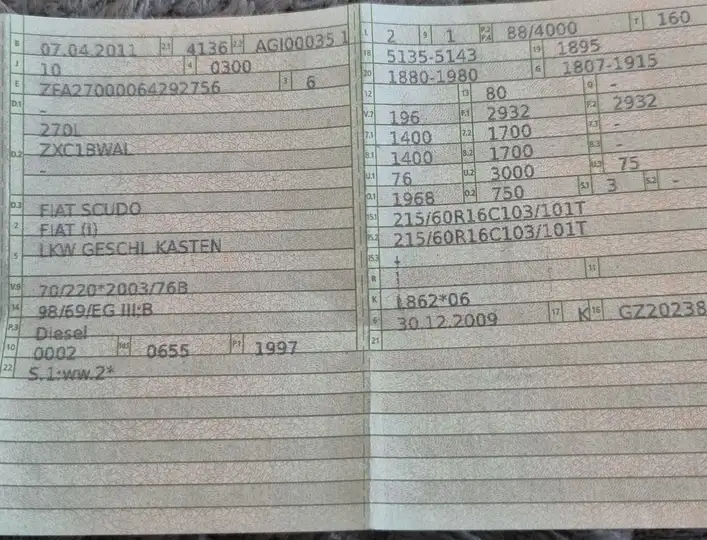 B 07.04.2011 2.1 4136 2.2 AGI00035 1
J 10 4 0300
E ZFA27000064292756 3 6
D.1 -
270L
D.2 ZXC1BWAL
-
D.3 FIAT SCUDO
2 FIAT (I)
5 LKW GESCHL.KASTEN
V.9 70/220*2003/76B
14 98/69/EG III;B
P.3 Diesel
10 0002 14.1 0655 P.1 1997
22 S.1:ww.2*
L 2 9 1 P.2 P.4 88/4000 T 160
18 5135-5143 19 1895
20 1880-1980 G 1807-1915
12 13 80 Q -
V.7 196 F.1 2932 F.2 2932
7.1 1400 7.2 1700 7.3 -
8.1 1400 8.2 1700 8.3 -
U.1 76 U.2 3000 U.3 75
O.1 1968 O.2 750 S.1 3 S.2 -
15.1 215/60R16C103/101T
15.2 215/60R16C103/101T
15.3 -
R 11
K L862*06
6 30.12.2009 17 K 16 GZ20238
21